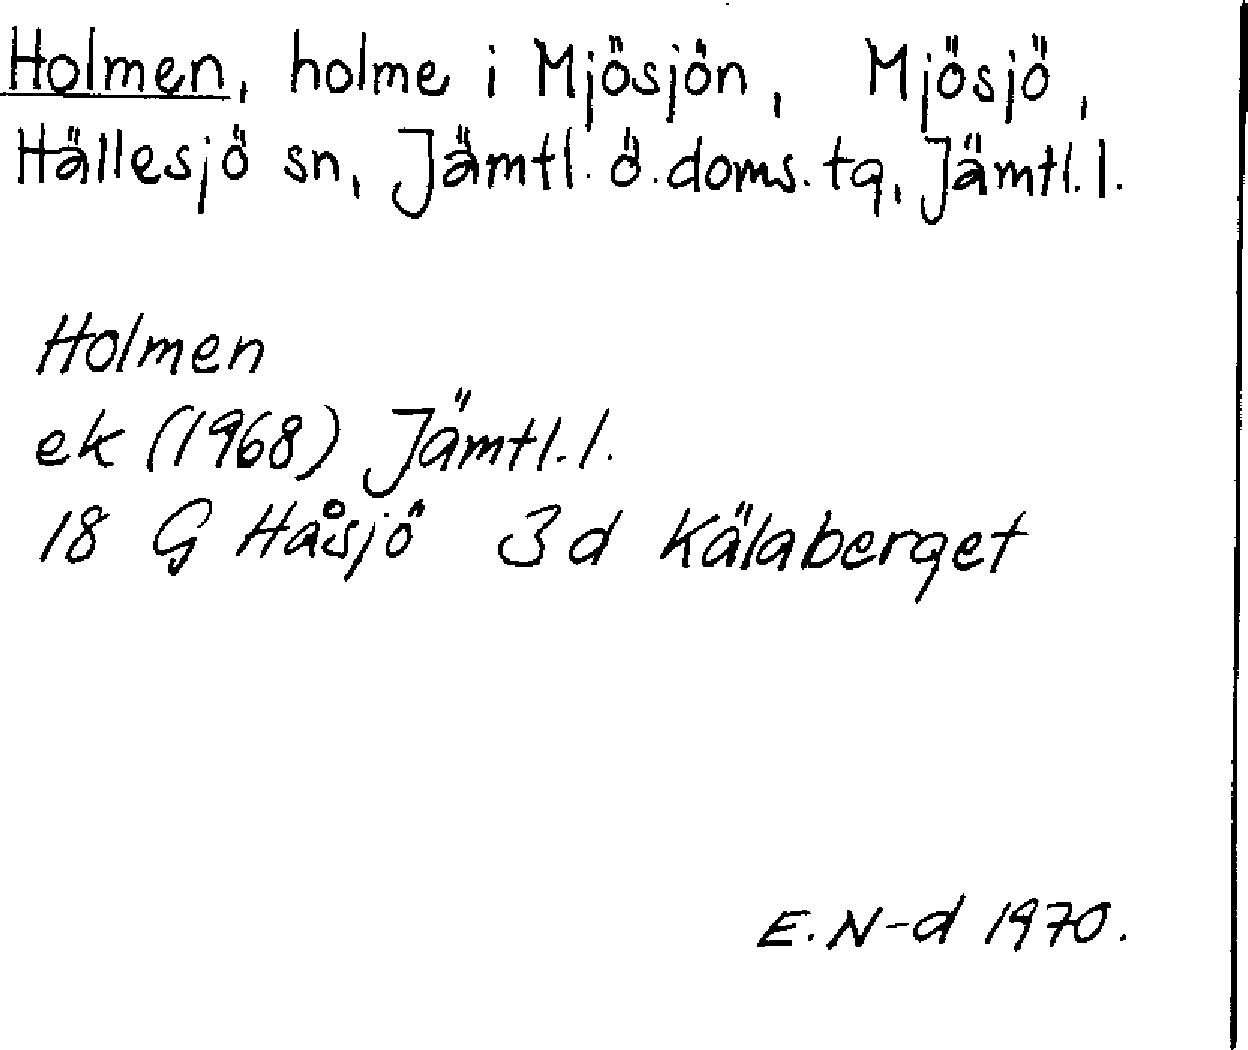 Holmen, holme i Mjösjön, Mjösjö,
Hällesjö sn, Jämtl. ö. doms. tg, Jämtl. l.
Holmen
ek (1968) Jämtl. l.
18 G Håsjö 3 d Kälaberget
E. N-d 1970.